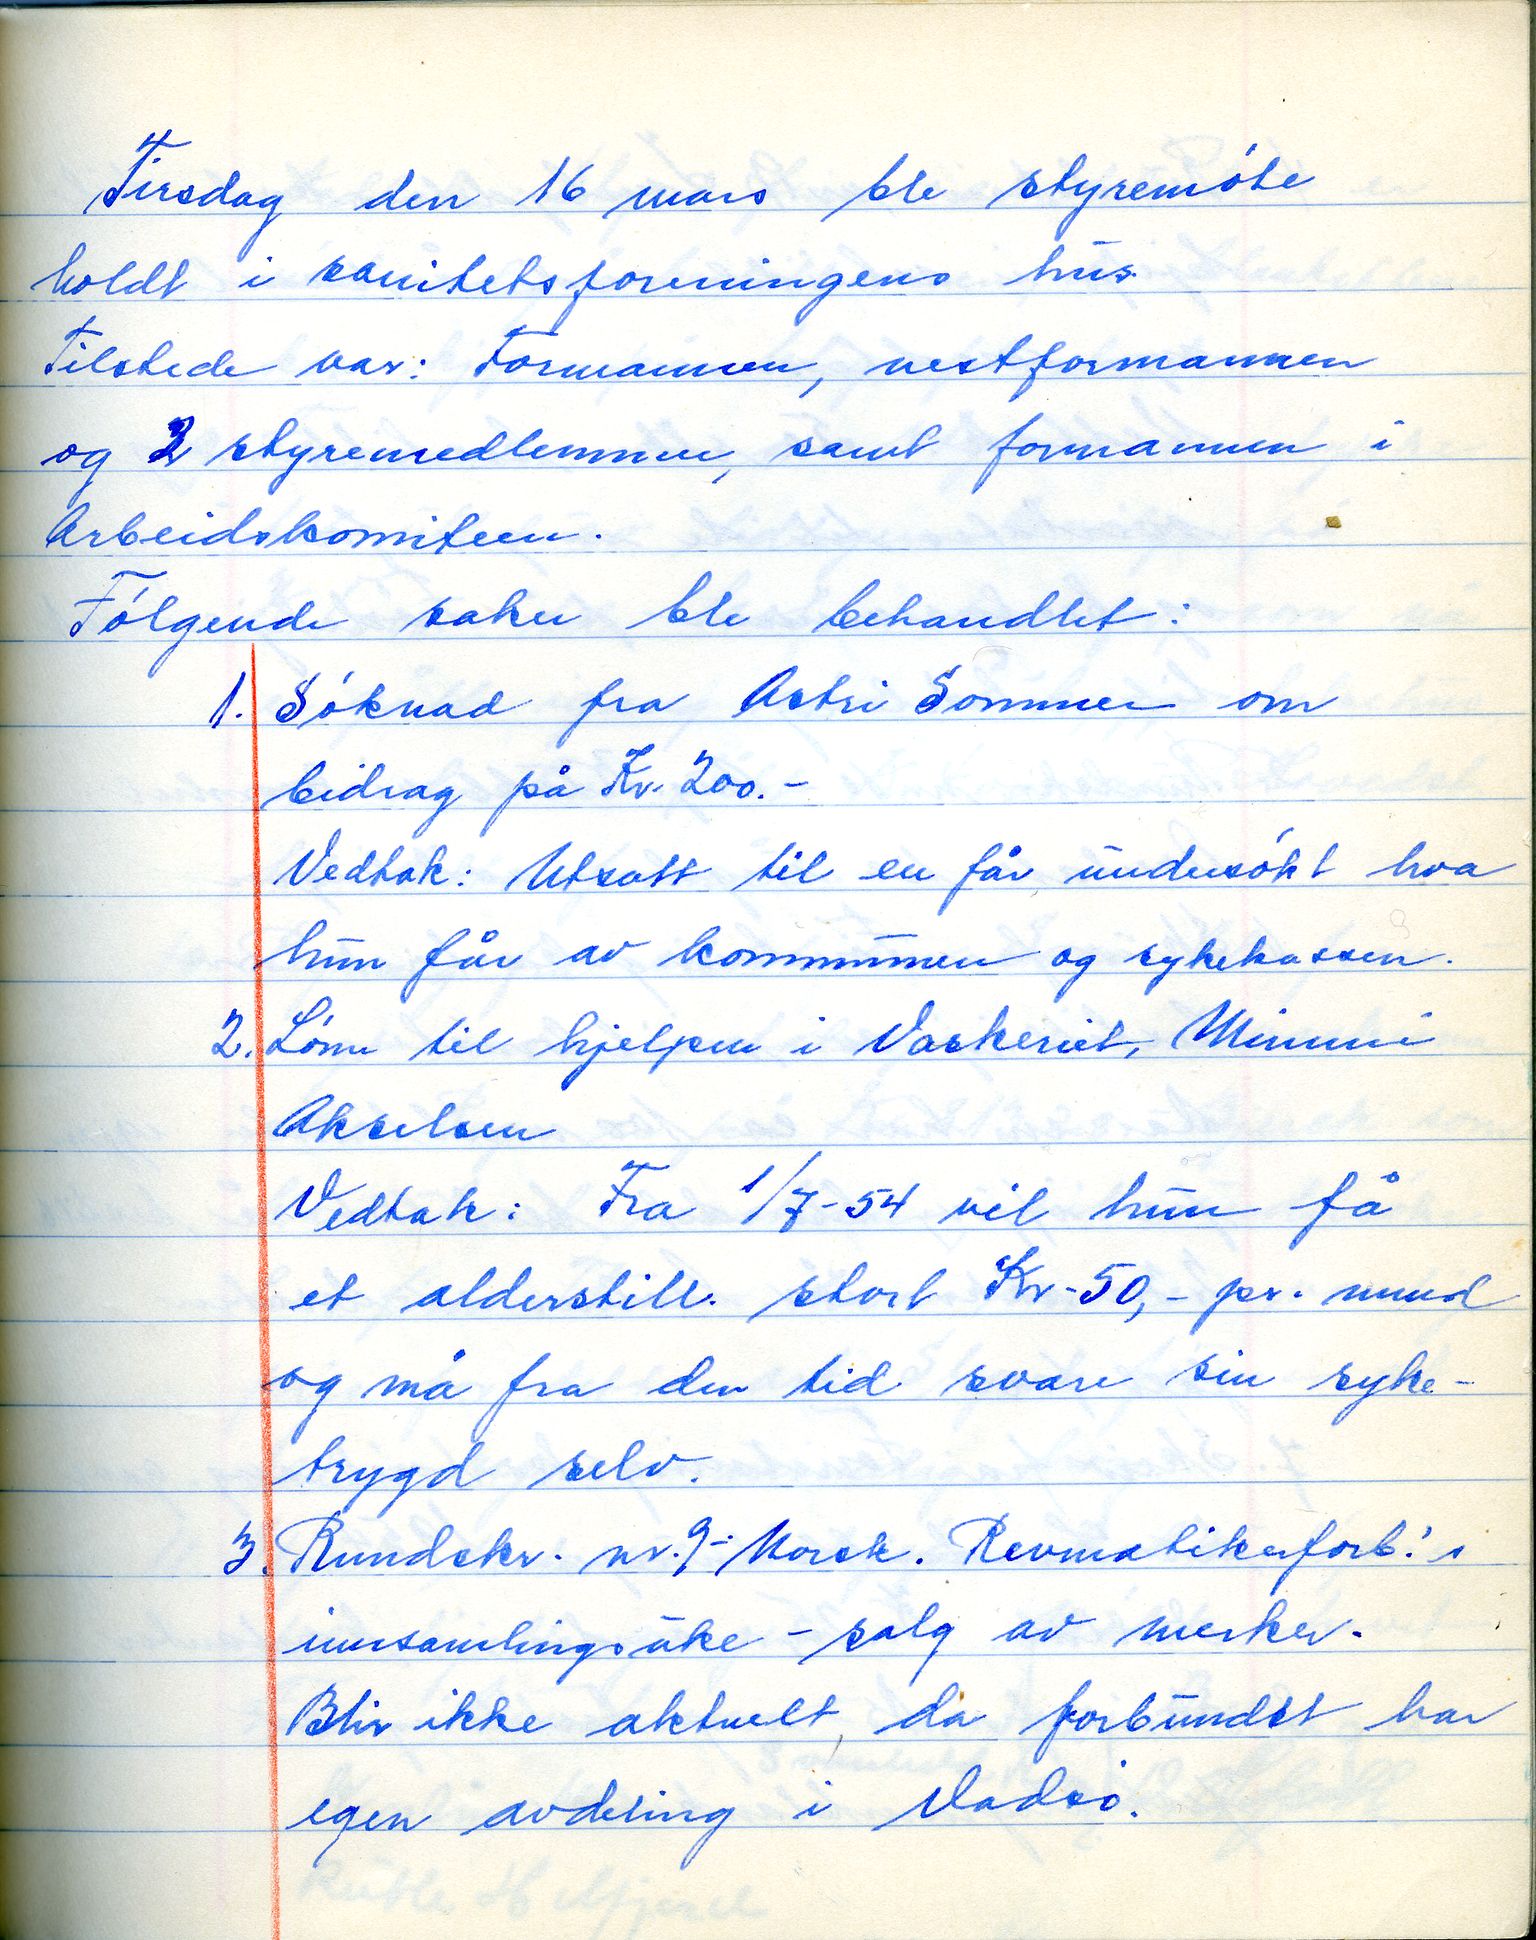 Tirsdag den 16 mars ble styremöte
holdt i sanitetsforeningens hus.
Tilstede var: Formannen, nestformannen
og 3 styremedlemmer, samt formannen i
Arbeidskomiteen.
Følgende saker ble behandlet:
1. Søknad fra Astri Sommer om
bidrag på Kr. 200.-
Vedtak: Utsatt til en får undersøkt hva
hun får av kommunen og sykekassen.
2. Lønn til hjelpen i Vaskeriet, Mimmi
Akselsen
Vedtak: Fra 1/7-54 vil hun få
et alderstill. stort Kr-50,- pr. mund
og må fra den tid svare sin syke-
trygd selv.
3. Rundskr. nr. 9- Norsk. Revmatikerforb.'s
innsamlingsuke - salg av merker.
Blir ikke aktuelt, da forbundet har
egen avdeling i Vadsø.